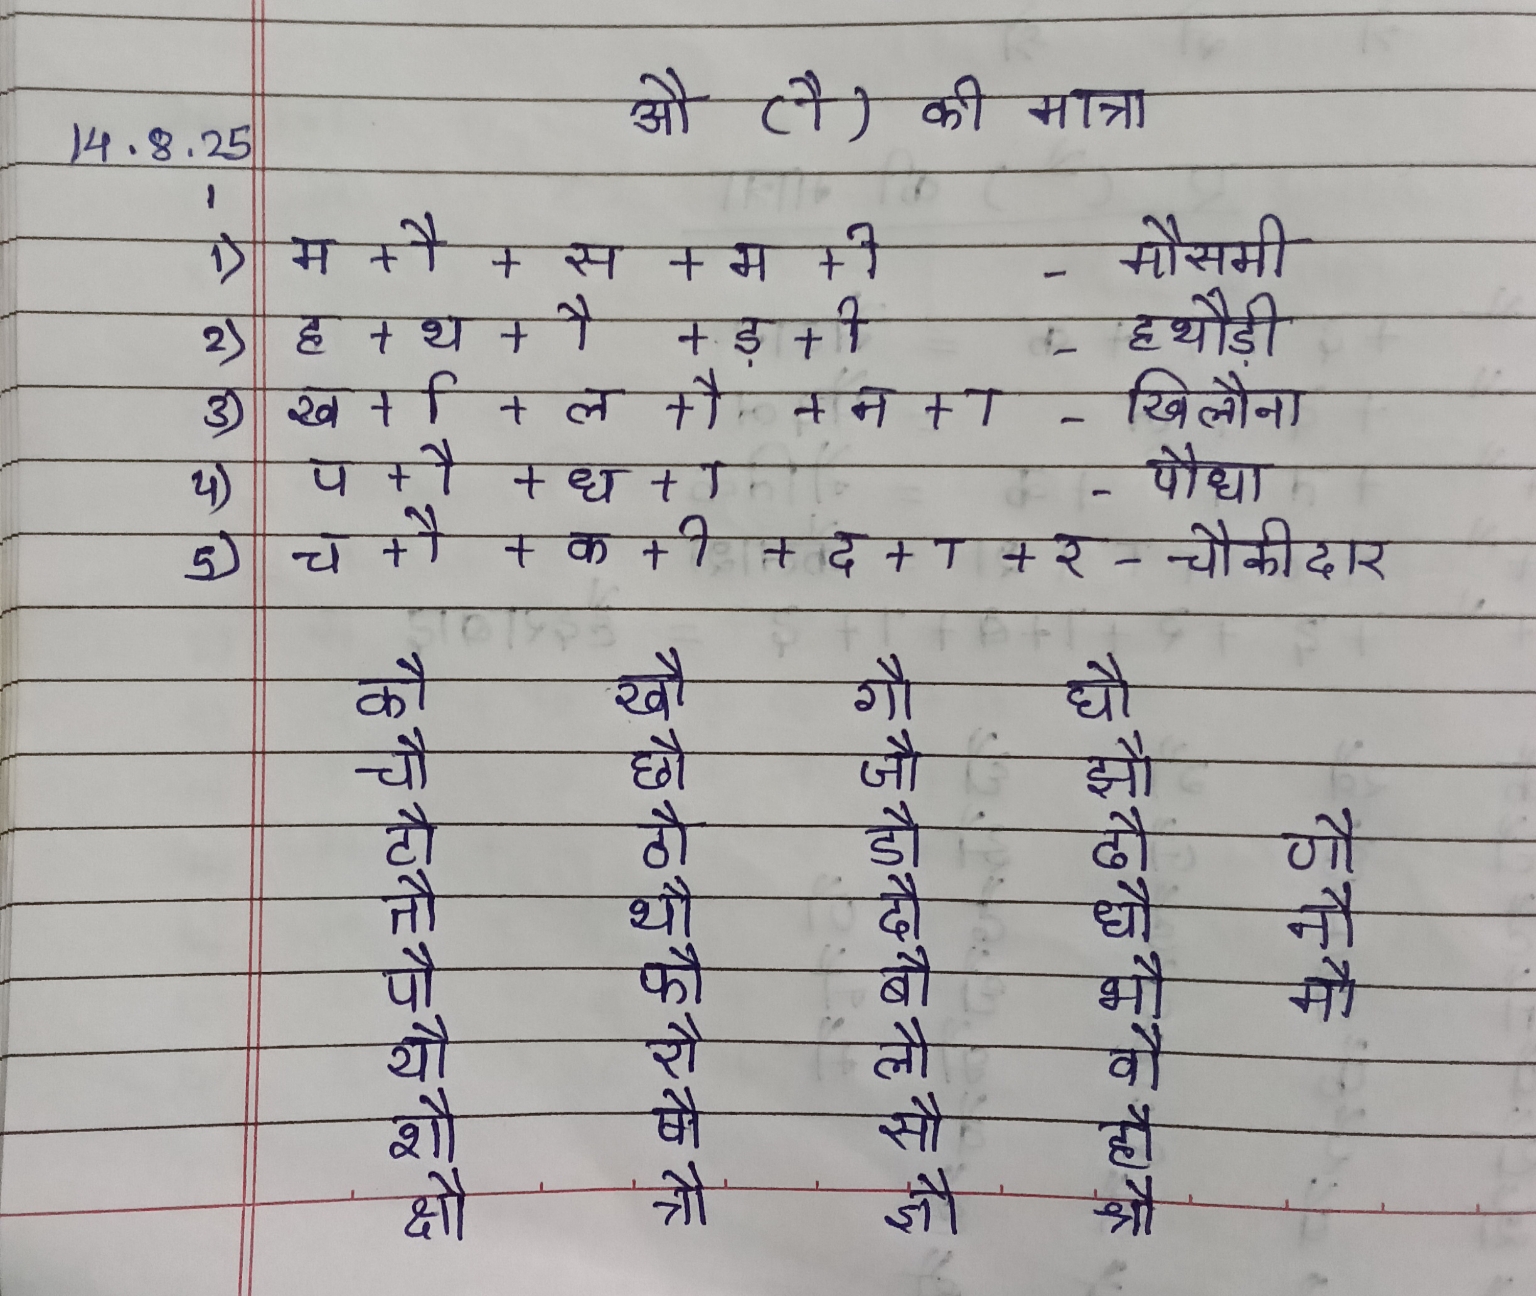 औ (ौ) की मात्रा
14.8.25
1
1) म + ौ + स + म + ी - मौसमी
2) ह + थ + ौ + ड़ + ी - हथौड़ी
3) ख + ि + ल + ौ + न + ा - खिलौना
4) प + ौ + ध + ा - पौधा
5) च + ौ + क + ी + द + ा + र - चौकीदार
कौ खौ गौ घौ
चौ छौ जौ झौ
टौ ठौ डौ ढौ णौ
तौ थौ दौ धौ नौ
पौ फौ बौ भौ मौ
यौ रौ लौ वौ
शौ षौ सौ हौ
क्षौ त्रौ ज्ञौ श्रौ